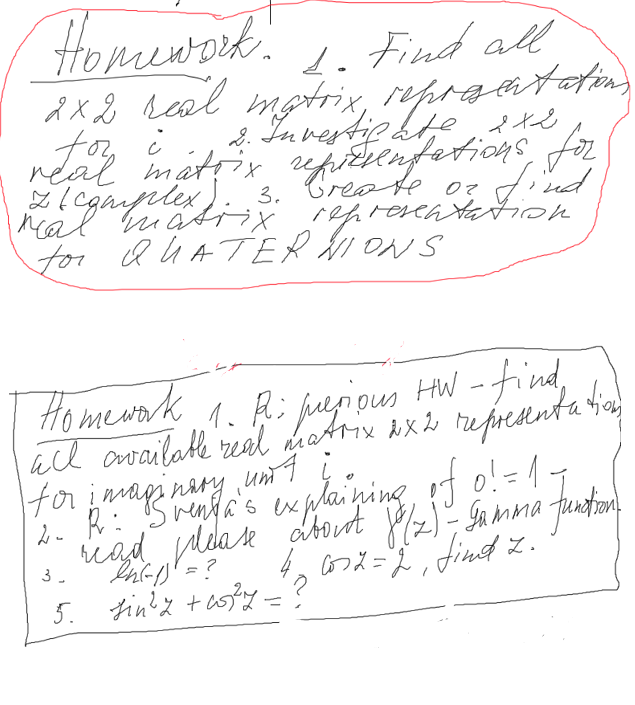 Homework. 1. Find all
2x2 real matrix representations
for i. 2. Investigate 2x2
real matrix representations for
z (complex). 3. Create or find
real matrix representation
for QUATERNIONS
Homework 1. R: previous HW - find
all available real matrix 2x2 representations
for imaginary unit i.
2. R: explaining of 0! = 1 -
read please about γ(z) - Gamma function.
3. ln(-1) = ? 4. cos z = 2, find z.
5. sin²z + cos²z = ?